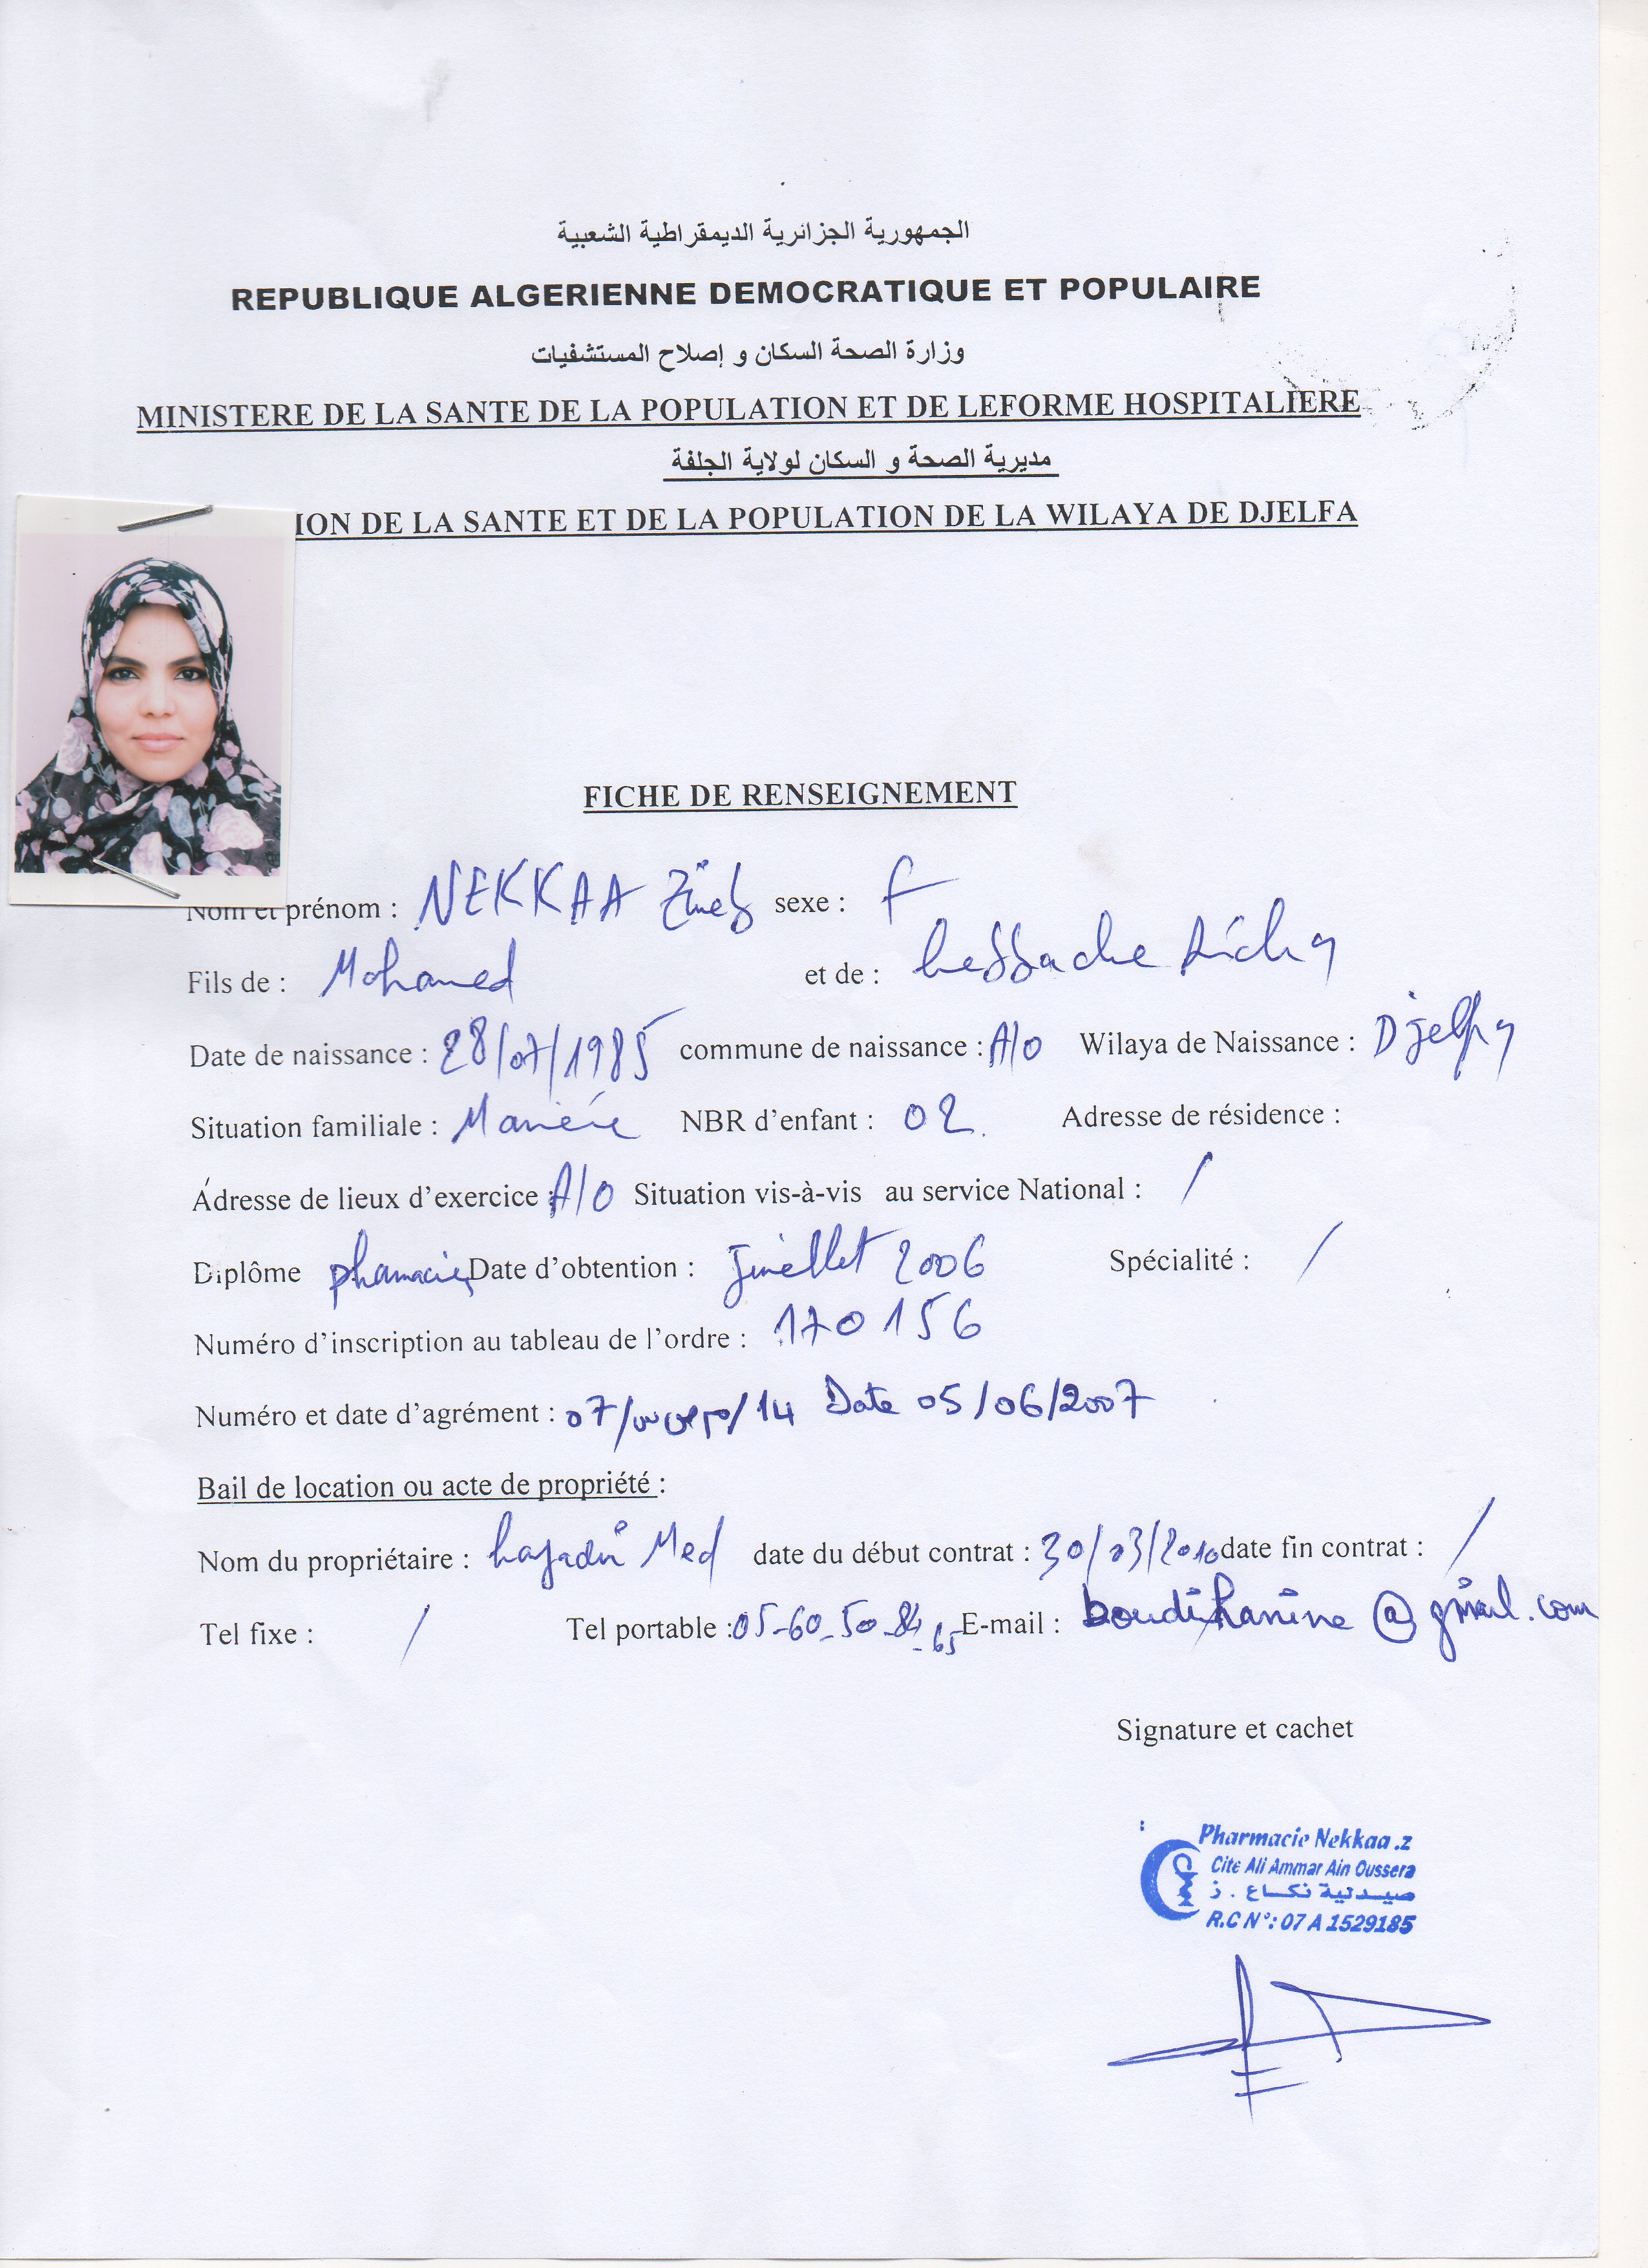 الجمهورية الجزائرية الديمقراطية الشعبية
REPUBLIQUE ALGERIENNE DEMOCRATIQUE ET POPULAIRE
وزارة الصحة السكان و إصلاح المستشفيات
MINISTERE DE LA SANTE DE LA POPULATION ET DE LEFORME HOSPITALIERE
مديرية الصحة و السكان لولاية الجلفة
ION DE LA SANTE ET DE LA POPULATION DE LA WILAYA DE DJELFA
FICHE DE RENSEIGNEMENT
Nom et prénom : NEKKAA Zineb sexe : f
Fils de : Mohamed et de :
Date de naissance : 28/07/1985 commune de naissance : A/O Wilaya de Naissance : Djelfa
Situation familiale : Mariée NBR d'enfant : 02 Adresse de résidence :
Adresse de lieux d'exercice : A/O Situation vis-à-vis au service National : /
Diplôme Date d'obtention : 2006 Spécialité : /
Numéro d'inscription au tableau de l'ordre : 170156
Numéro et date d'agrément : Date 05/06/2007
Bail de location ou acte de propriété :
Nom du propriétaire : Med date du début contrat : 30/03/2010 date fin contrat : /
Tel fixe : / Tel portable : 05-60-50-84-65 E-mail :
Signature et cachet
Pharmacie Nekkaa .z
Cité Ali Ammar Ain Oussera
صيدلية نكاع . ز
R.C N°: 07 A 1529185